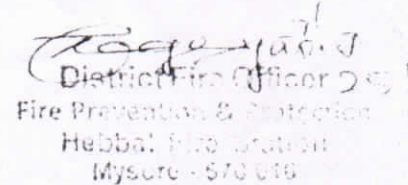 District Fire Officer
Fire Prevention & Protection
Hebbal Fire Station
Mysore - 570 016